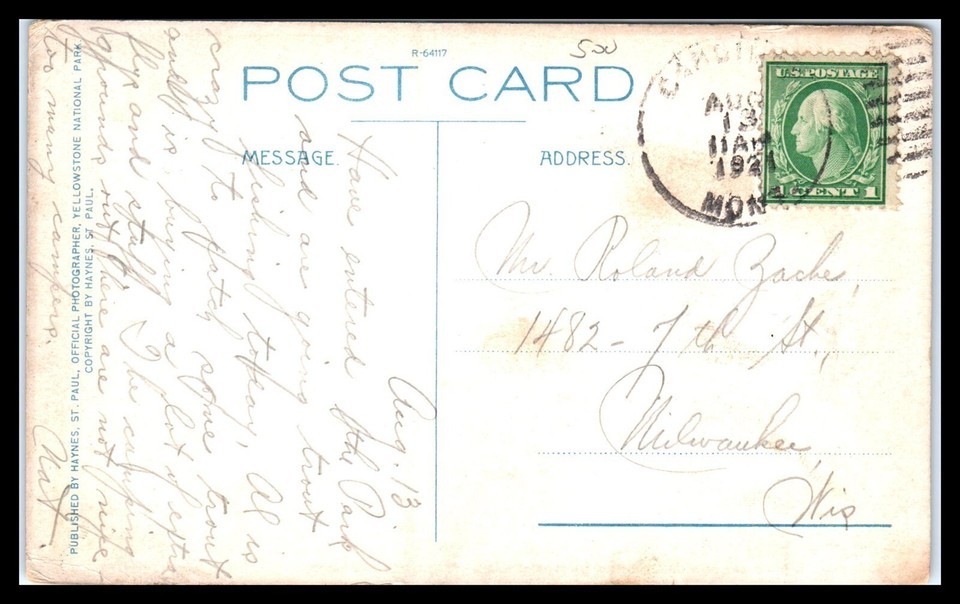 R-64117
500
POST CARD
MESSAGE.
ADDRESS.
GARDINER
AUG
13
11AM
1921
MONT.
U.S. POSTAGE
1 CENT 1
Aug. 13
Have entered the Park
and are going trout
fishing today. Al is
crazy to catch some trout
and is buying a lot of extra
flys and stuff. The camping
grounds out here are not nice -
too many campers.
Nat.
Mr. Roland Zache,
1482 - 7th St.,
Milwaukee,
Wis
PUBLISHED BY HAYNES, ST. PAUL, OFFICIAL PHOTOGRAPHER, YELLOWSTONE NATIONAL PARK.
COPYRIGHT BY HAYNES, ST. PAUL.